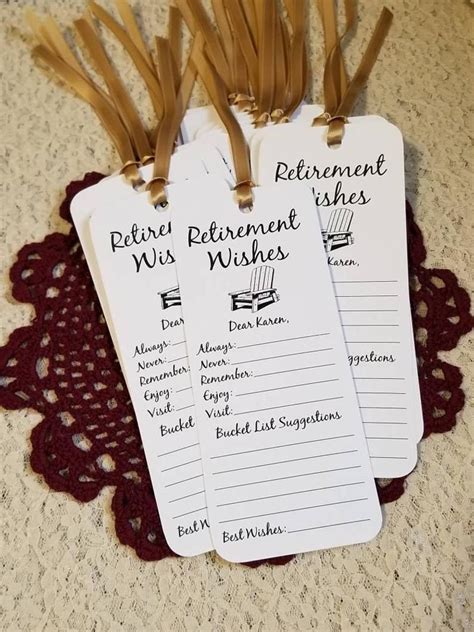 Retirement
Wishes
Dear Karen,
Always:
Never:
Remember:
Enjoy:
Visit:
Bucket List Suggestions
Best Wishes:
Retirement
Wish
Dear
Always:
Never:
Remember:
Enjoy:
Visit:
Bucket Li
Best Wishes:
Retirement
Wishes
Karen,
Suggestions